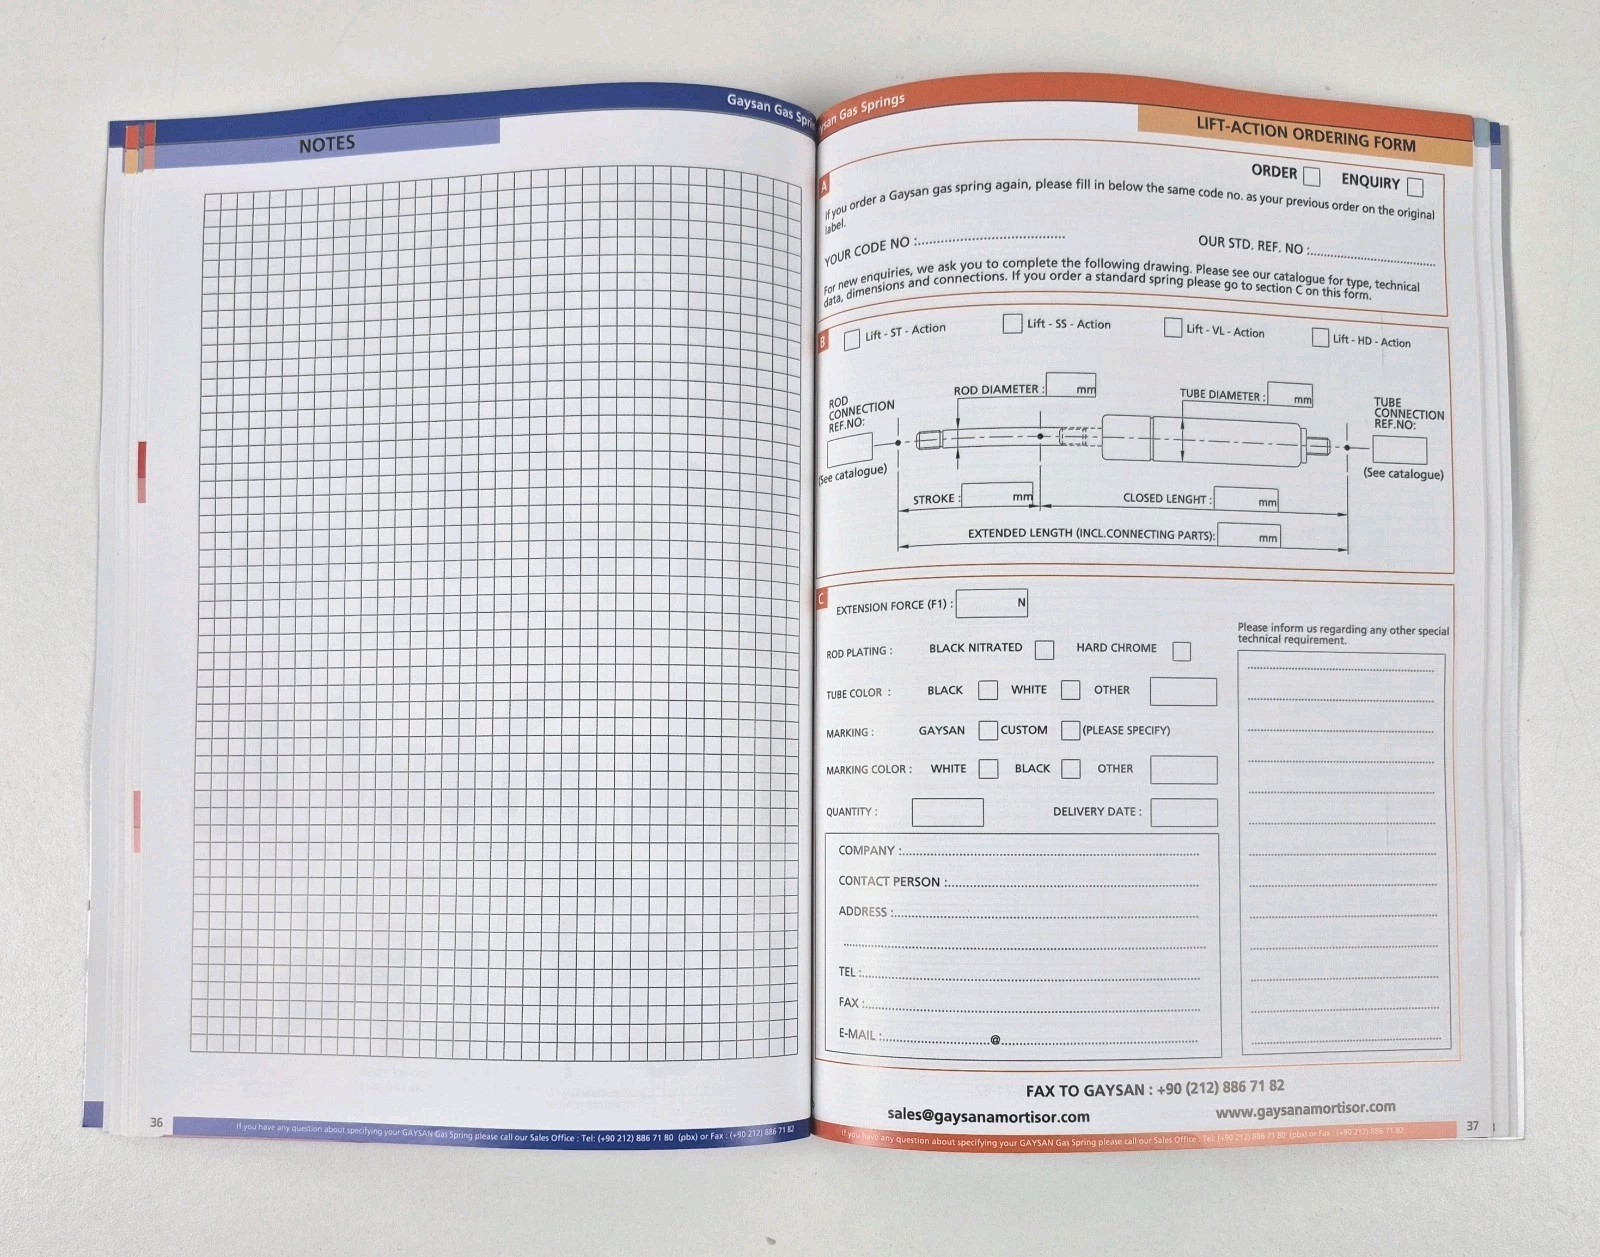 Gaysan Gas Spri
NOTES
36
If you have any question about specifying your GAYSAN Gas Spring please call our Sales Office : Tel: (+90 212) 886 71 80 (pbx) or Fax : (+90 212) 886 71 82
ysan Gas Springs
LIFT-ACTION ORDERING FORM
A
ORDER
ENQUIRY
If you order a Gaysan gas spring again, please fill in below the same code no. as your previous order on the original
label.
YOUR CODE NO :
OUR STD. REF. NO :
For new enquiries, we ask you to complete the following drawing. Please see our catalogue for type, technical
data, dimensions and connections. If you order a standard spring please go to section C on this form.
B
Lift - ST - Action
Lift - SS - Action
Lift - VL - Action
Lift - HD - Action
ROD
CONNECTION
REF.NO:
(See catalogue)
ROD DIAMETER : mm
TUBE DIAMETER : mm
TUBE
CONNECTION
REF.NO:
(See catalogue)
STROKE : mm
CLOSED LENGHT : mm
EXTENDED LENGTH (INCL.CONNECTING PARTS): mm
C
EXTENSION FORCE (F1) : N
ROD PLATING : BLACK NITRATED HARD CHROME
TUBE COLOR : BLACK WHITE OTHER
MARKING : GAYSAN CUSTOM (PLEASE SPECIFY)
MARKING COLOR : WHITE BLACK OTHER
QUANTITY : DELIVERY DATE :
Please inform us regarding any other special
technical requirement.
COMPANY :
CONTACT PERSON :
ADDRESS :
TEL :
FAX :
E-MAIL : @
FAX TO GAYSAN : +90 (212) 886 71 82
sales@gaysanamortisor.com
www.gaysanamortisor.com
If you have any question about specifying your GAYSAN Gas Spring please call our Sales Office : Tel: (+90 212) 886 71 80 (pbx) or Fax : (+90 212) 886 71 82
37